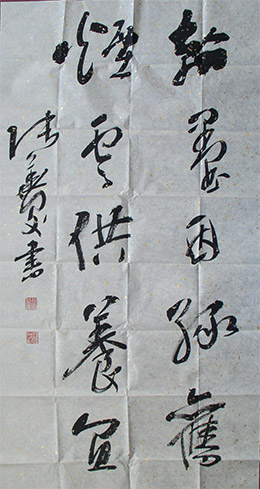 翰墨因緣舊
煙雲供養宜
書